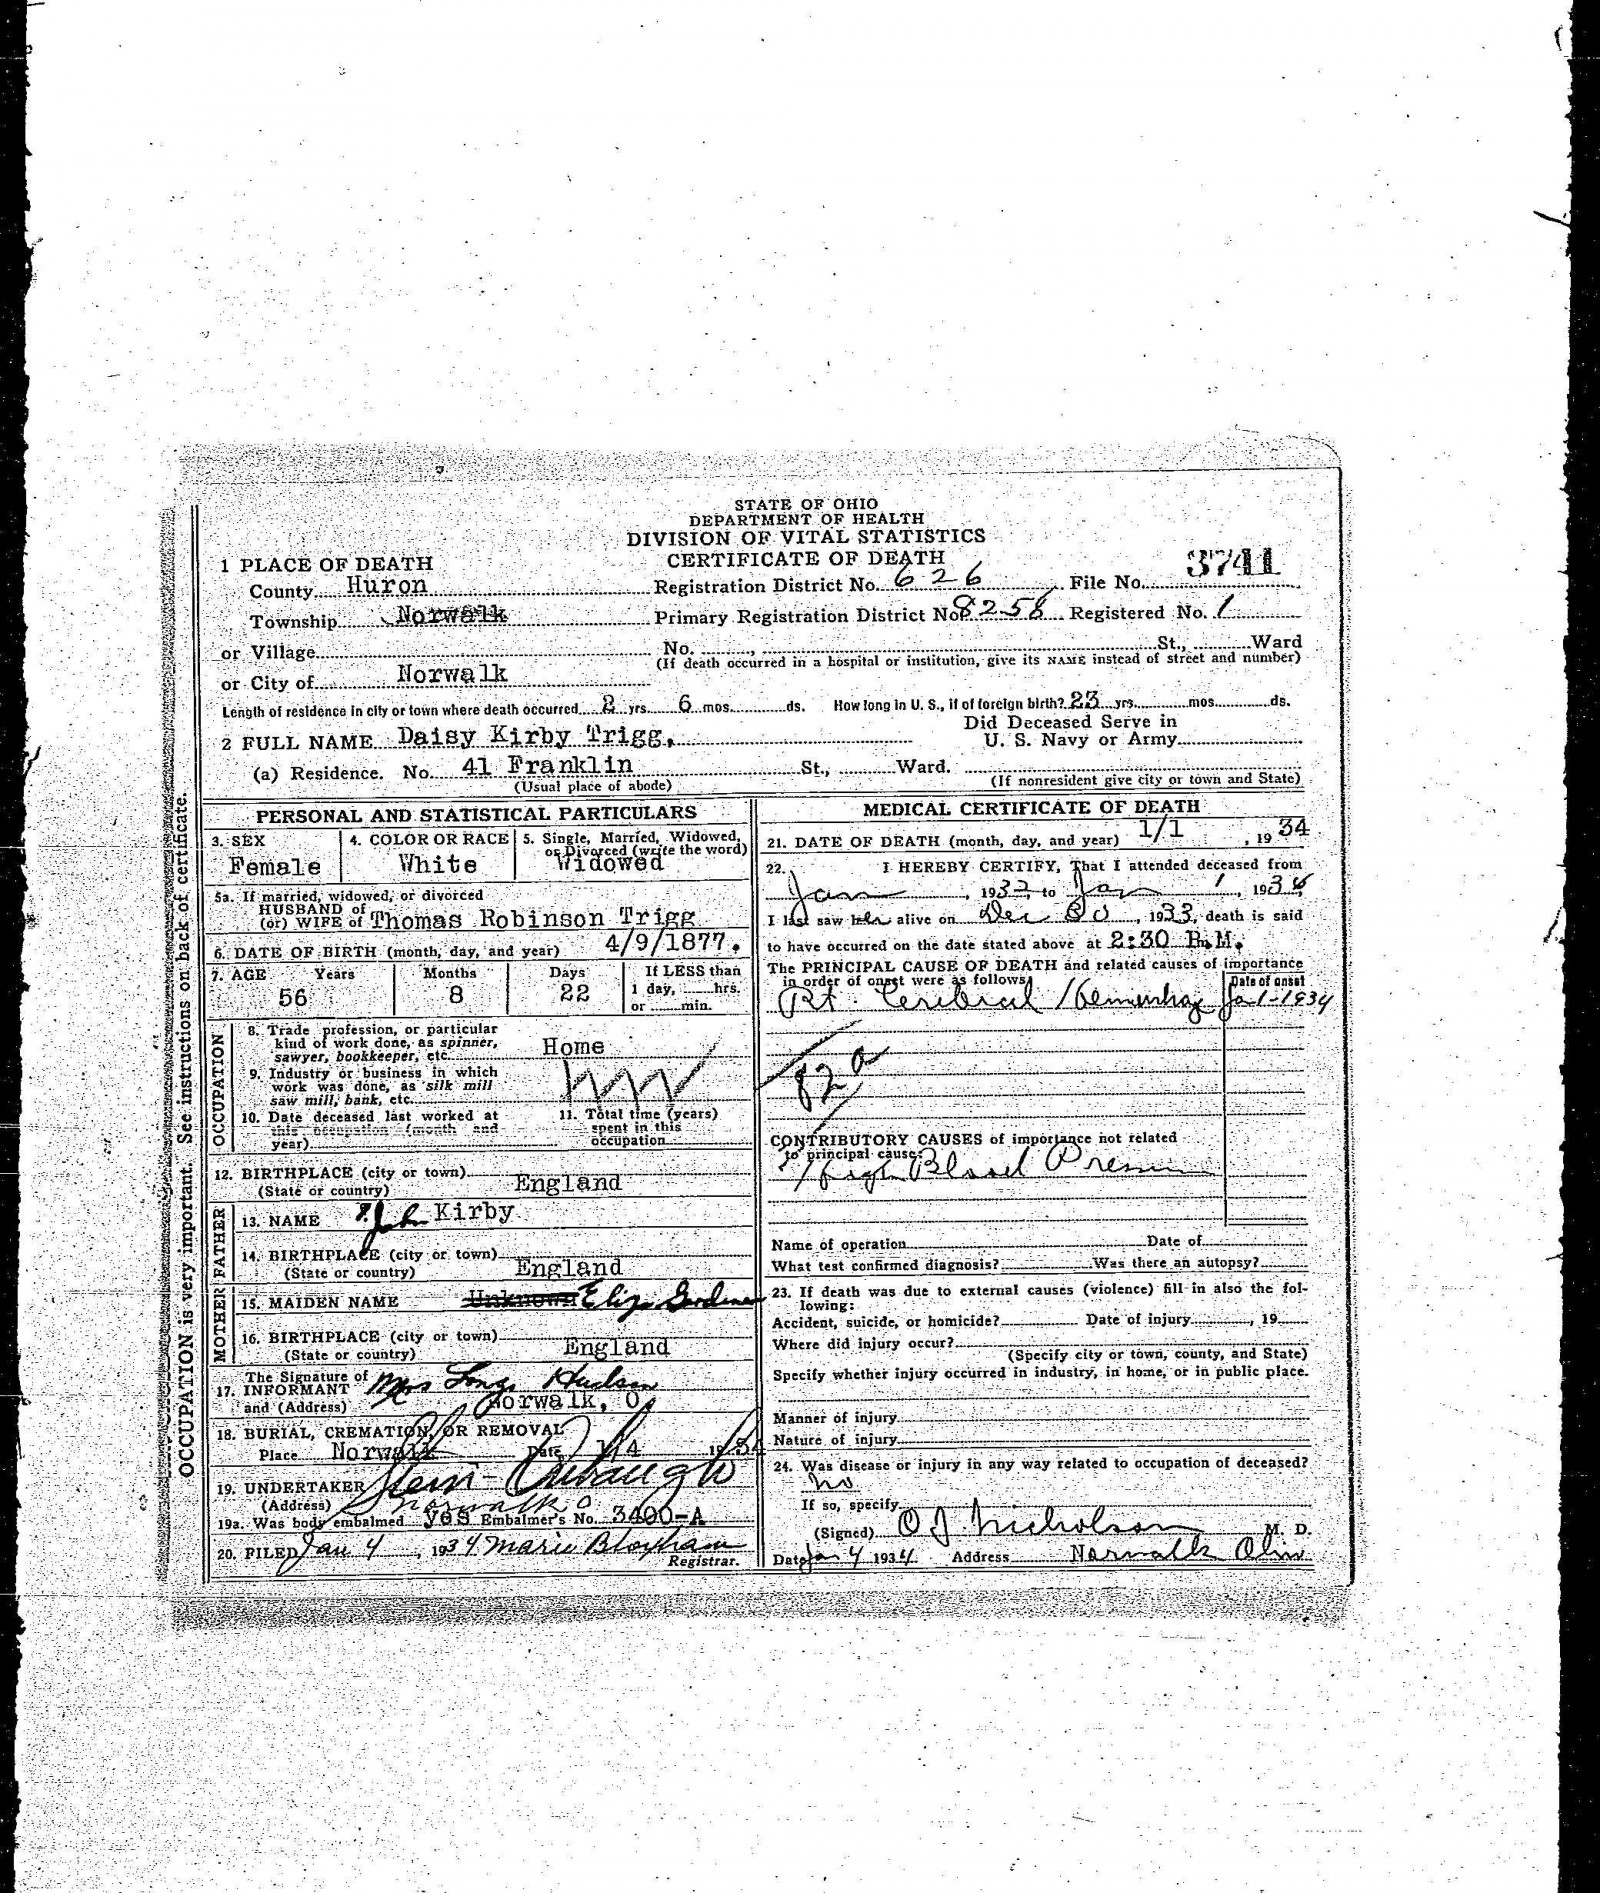 STATE OF OHIO
DEPARTMENT OF HEALTH
DIVISION OF VITAL STATISTICS
CERTIFICATE OF DEATH
3741
1 PLACE OF DEATH
County Huron Registration District No. 626 File No.
Township Norwalk Primary Registration District No. 8258 Registered No. 1
or Village No. , St., Ward
(If death occurred in a hospital or institution, give its NAME instead of street and number)
or City of Norwalk
Length of residence in city or town where death occurred 2 yrs. 6 mos. ds. How long in U. S., if of foreign birth? 23 yrs. mos. ds.
2 FULL NAME Daisy Kirby Trigg, Did Deceased Serve in
U. S. Navy or Army
(a) Residence. No. 41 Franklin St., Ward.
(Usual place of abode) (If nonresident give city or town and State)
OCCUPATION is very important. See instructions on back of certificate.
PERSONAL AND STATISTICAL PARTICULARS
3. SEX 4. COLOR OR RACE 5. Single, Married, Widowed,
or Divorced (write the word)
Female White Widowed
5a. If married, widowed, or divorced
HUSBAND of
(or) WIFE of Thomas Robinson Trigg
6. DATE OF BIRTH (month, day, and year) 4/9/1877.
7. AGE Years Months Days If LESS than
56 8 22 1 day, hrs.
or min.
OCCUPATION
8. Trade, profession, or particular
kind of work done, as spinner,
sawyer, bookkeeper, etc. Home
9. Industry or business in which
work was done, as silk mill
saw mill, bank, etc.
10. Date deceased last worked at
this occupation (month and
year)
11. Total time (years)
spent in this
occupation
12. BIRTHPLACE (city or town)
(State or country) England
FATHER
13. NAME Kirby
14. BIRTHPLACE (city or town)
(State or country) England
MOTHER
15. MAIDEN NAME Unknown Eliza Gardner
16. BIRTHPLACE (city or town)
(State or country) England
The Signature of
17. INFORMANT Mrs Hudson
and (Address) Norwalk, O.
18. BURIAL, CREMATION, OR REMOVAL
Place Norwalk Date 1/4 1934
19. UNDERTAKER
(Address) Norwalk O
19a. Was body embalmed yes Embalmer's No. 3400-A
20. FILED Jan 4, 1934 Marie Bloxham
Registrar.
MEDICAL CERTIFICATE OF DEATH
21. DATE OF DEATH (month, day, and year) 1/1, 1934
22. I HEREBY CERTIFY, That I attended deceased from
Jan , 1932, to Jan 1, 1934
I last saw her alive on Dec 30, 1933, death is said
to have occurred on the date stated above at 2:30 P.M.
The PRINCIPAL CAUSE OF DEATH and related causes of importance
in order of onset were as follows: Date of onset
Rt. Cerebral Hemorrhage Jan 1-1934
82a
CONTRIBUTORY CAUSES of importance not related
to principal cause:
High Blood Pressure
Name of operation Date of
What test confirmed diagnosis? Was there an autopsy?
23. If death was due to external causes (violence) fill in also the fol-
lowing:
Accident, suicide, or homicide? Date of injury , 19
Where did injury occur?
(Specify city or town, county, and State)
Specify whether injury occurred in industry, in home, or in public place.
Manner of injury
Nature of injury
24. Was disease or injury in any way related to occupation of deceased?
No
If so, specify
(Signed) O J Nicholson M. D.
Date Jan 4 1934 Address Norwalk Ohio